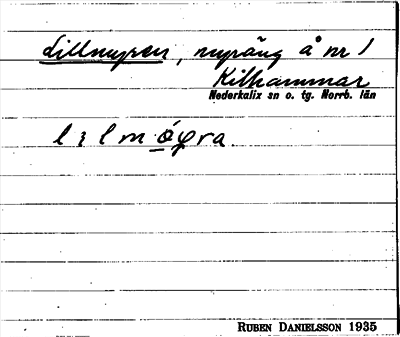 Lillmyran, myräng å nr 1
Kilhammar
Nederkalix sn o. tg. Norrb. län
RUBEN DANIELSSON 1935